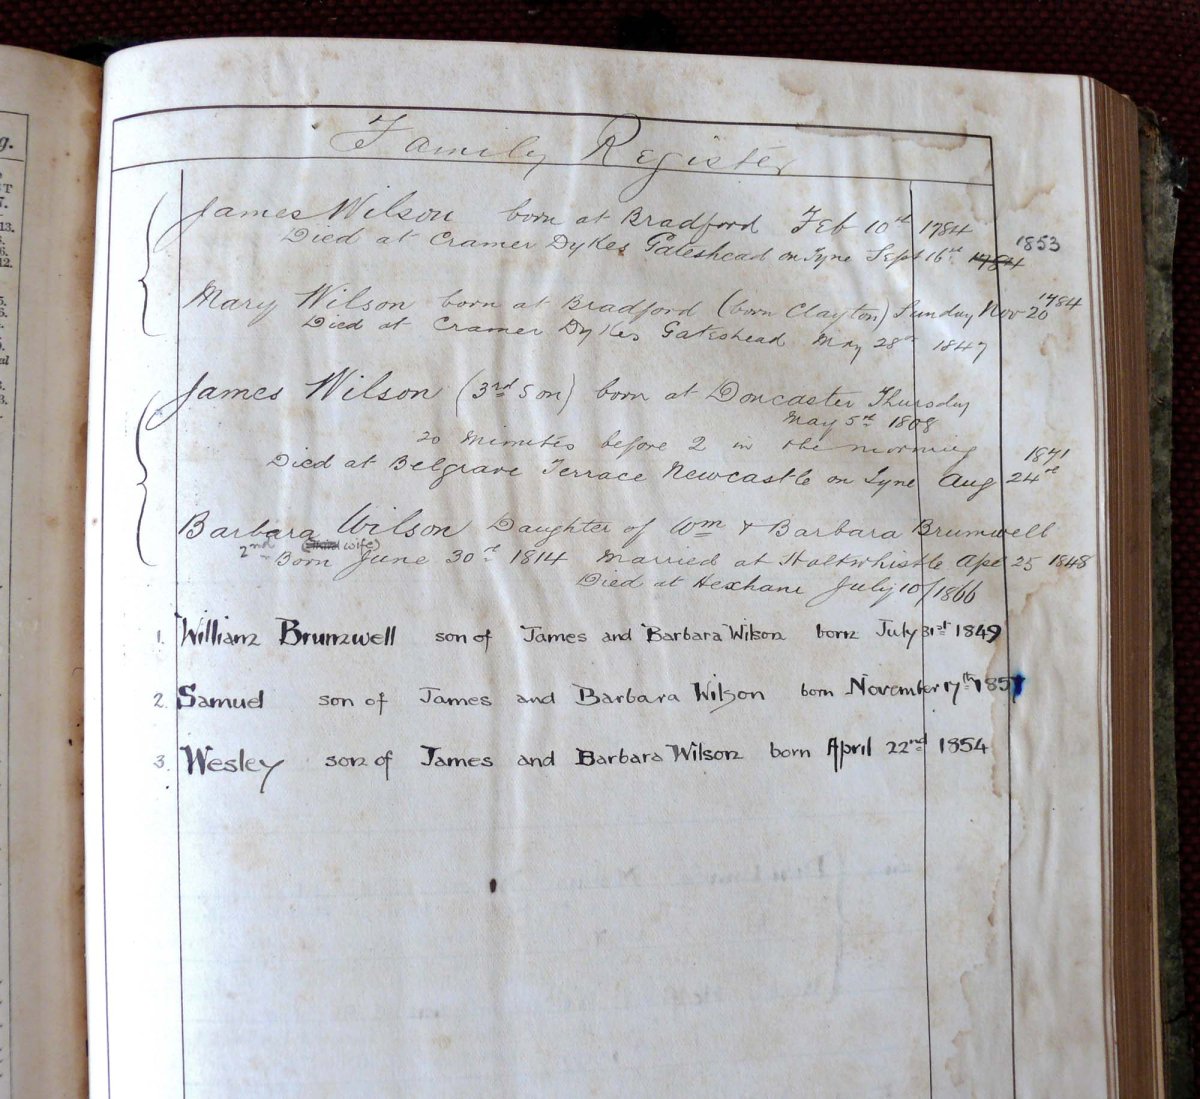 Family Register
James Wilson born at Bradford Feb 10th 1784
Died at Cramer Dykes Gateshead on Tyne Sept 16th 1784 1853
Mary Wilson born at Bradford (born Clayton) Sunday Nov 20 1784
Died at Cramer Dykes Gateshead May 28th 1847
James Wilson (3rd Son) born at Doncaster Thursday
May 5th 1808
20 minutes before 2 in the morning
Died at Belgrave Terrace Newcastle on Tyne Aug 24th 1871
Barbara Wilson Daughter of Wm & Barbara Brumwell
2nd wife)
Born June 30th 1814 Married at Haltwhistle Apr 25 1848
Died at Hexham July 10/1866
1. William Brumwell son of James and Barbara Wilson born July 31st 1849
2. Samuel son of James and Barbara Wilson born November 17th
3. Wesley son of James and Barbara Wilson born April 22nd 1854